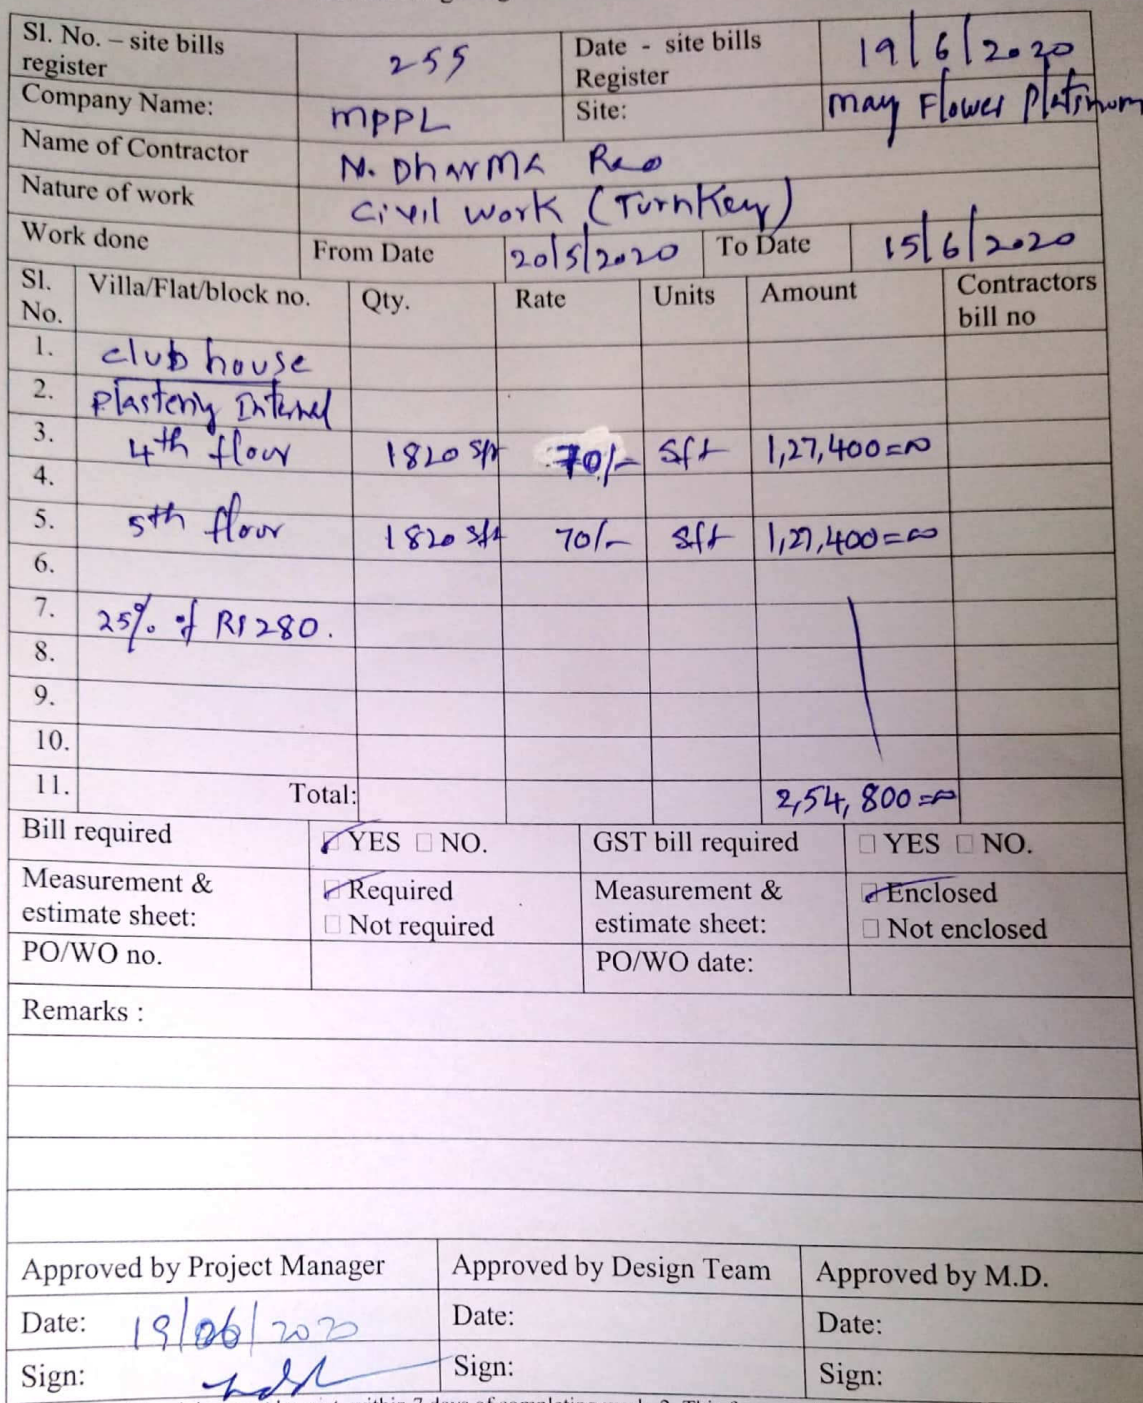 Sl. No. – site bills register 255 Date - site bills Register 19/6/2020
Company Name: MPPL Site: May Flower Platinum
Name of Contractor N. Dharma Rao
Nature of work Civil work (Turnkey)
Work done From Date 20/5/2020 To Date 15/6/2020
Sl. No. Villa/Flat/block no. Qty. Rate Units Amount Contractors bill no
1. club house
2. Plastering Internal
3. 4th floor 1820 sft 70/- sft 1,27,400=00
4.
5. 5th floor 1820 sft 70/- sft 1,27,400=00
6.
7. 25% of Rs 280.
8.
9.
10.
11. Total: 2,54,800=00
Bill required ☑ YES □ NO. GST bill required □ YES □ NO.
Measurement & estimate sheet: ☑ Required □ Not required Measurement & estimate sheet: ☑ Enclosed □ Not enclosed
PO/WO no. PO/WO date:
Remarks :
Approved by Project Manager Approved by Design Team Approved by M.D.
Date: 19/06/2020 Date: Date:
Sign: Sign: Sign: